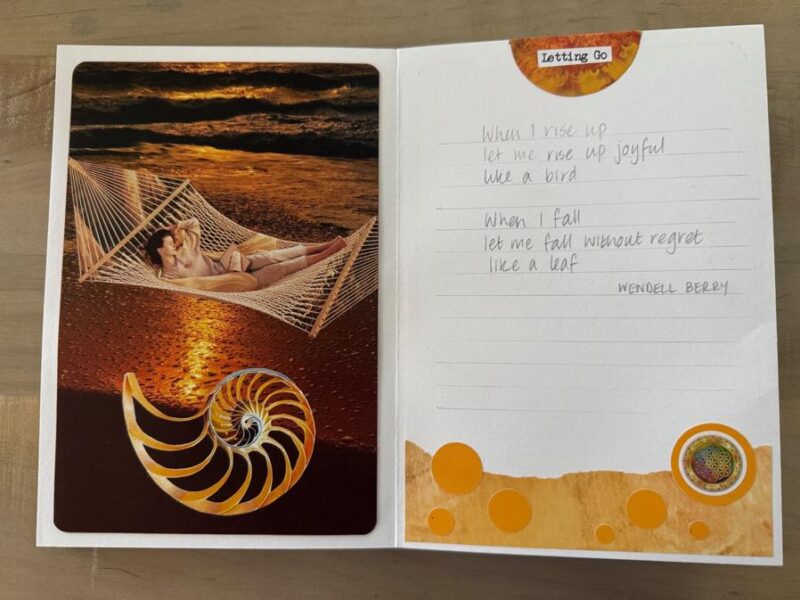 Letting Go
When I rise up
let me rise up joyful
like a bird
When I fall
let me fall without regret
like a leaf
WENDELL BERRY